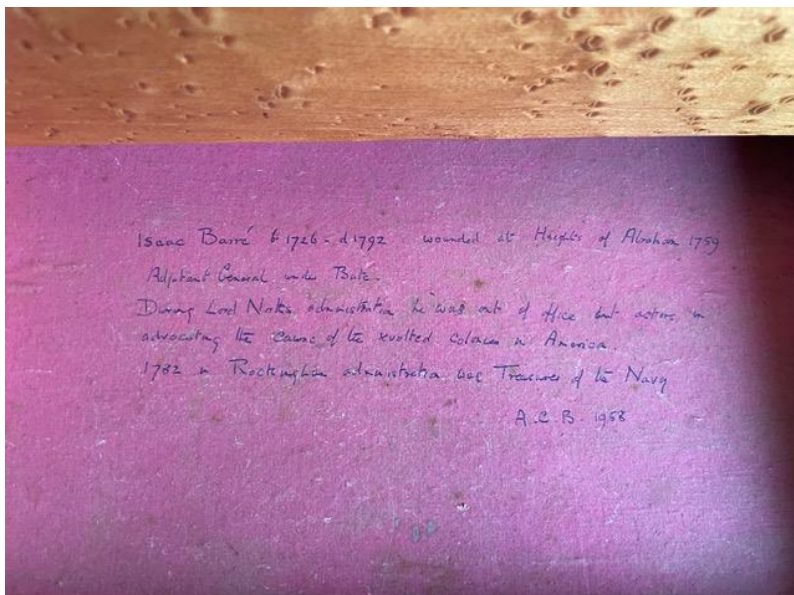 Isaac Barré b 1726 - d 1792. wounded at Heights of Abraham 1759
Adjutant General under Bute.
During Lord North's administration he was out of office but active in
advocating the cause of the revolted colonies in America.
1782 in Rockingham administration was Treasurer of the Navy
A.C.B. 1958